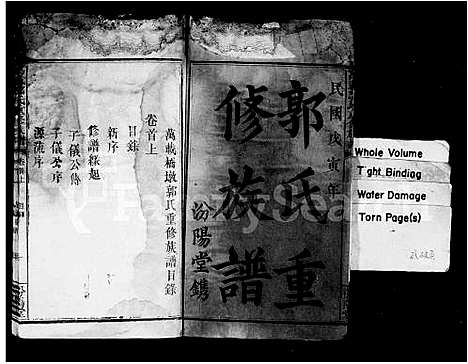 民國戊寅年
郭氏重
修族譜
汾陽堂鐫
萬載橋墩郭氏重修族譜目錄
卷首上
目錄
新序
修譜緣起
子儀公像
子儀公序
源流序
Whole Volume
Tight Binding
Water Damage
Torn Page(s)